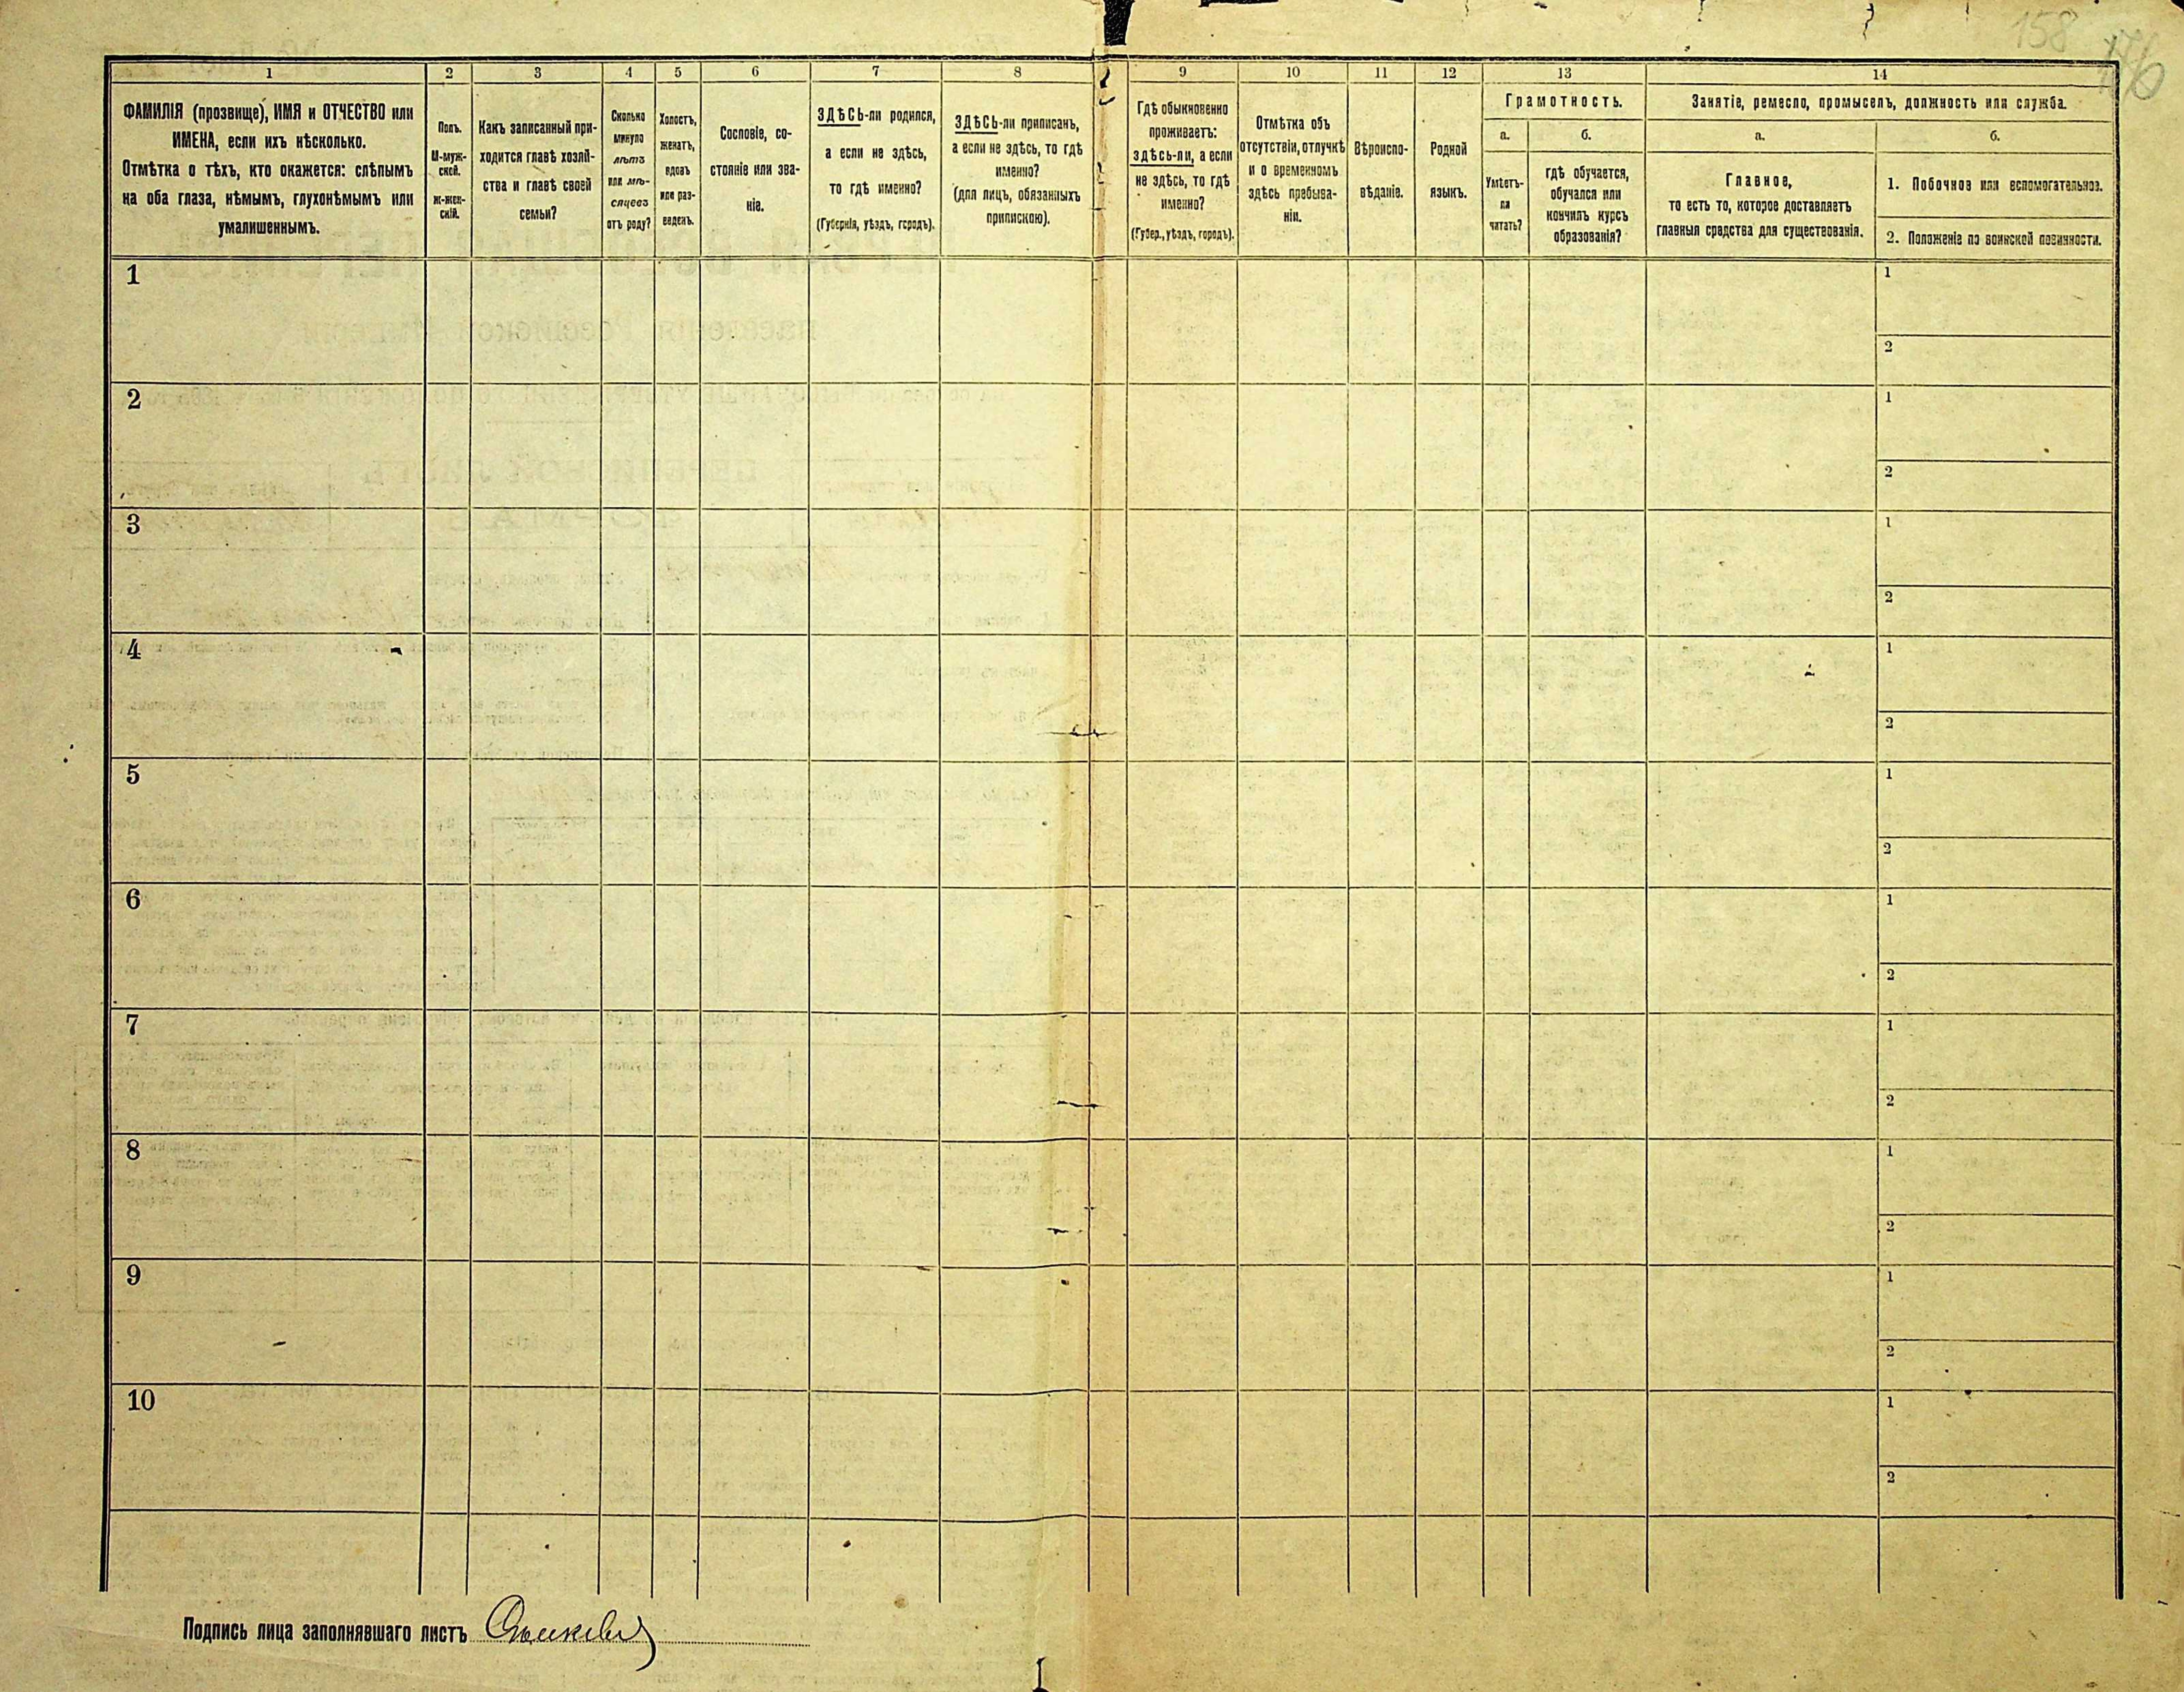 158
176
1 2 3 4 5 6 7 8 9 10 11 12 13 14
ФАМИЛІЯ (прозвище), ИМЯ и ОТЧЕСТВО или
ИМЕНА, если ихъ нѣсколько.
Отмѣтка о тѣхъ, кто окажется: слѣпымъ
на оба глаза, нѣмымъ, глухонѣмымъ или
умалишеннымъ.
Полъ.
М-муж-
ской.
ж-жен-
скій.
Какъ записанный при-
ходится главѣ хозяй-
ства и главѣ своей
семьи?
Сколько
минуло
лѣтъ
или мѣ-
сяцевъ
отъ роду?
Холостъ,
женатъ,
вдовъ
или раз-
веденъ.
Сословіе, со-
стояніе или зва-
ніе.
ЗДѢСЬ-ли родился,
а если не здѣсь,
то гдѣ именно?
(Губернія, уѣздъ, городъ).
ЗДѢСЬ-ли приписанъ,
а если не здѣсь, то гдѣ
именно?
(для лицъ, обязанныхъ
припискою).
Гдѣ обыкновенно
проживаетъ:
здѣсь-ли, а если
не здѣсь, то гдѣ
именно?
(Губер., уѣздъ, городъ).
Отмѣтка объ
отсутствіи, отлучкѣ
и о временномъ
здѣсь пребыва-
ніи.
Вѣроиспо-
вѣданіе.
Родной
языкъ.
Грамотность.
а.
Умѣетъ-
ли
читать?
б.
гдѣ обучается,
обучался или
кончилъ курсъ
образованія?
Занятіе, ремесло, промыселъ, должность или служба.
а.
Главное,
то есть то, которое доставляетъ
главныя средства для существованія.
б.
1. Побочное или вспомогательное.
2. Положеніе по воинской повинности.
1 1
2
2 1
2
3 1
2
4 1
2
5 1
2
6 1
2
7 1
2
8 1
2
9 1
2
10 1
2
Подпись лица заполнявшаго листъ